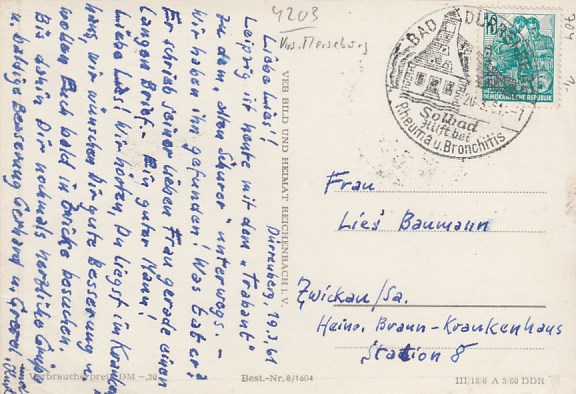 4203
Krs. Merseburg
BAD DÜRRENBERG
Solbad
Hilft bei
Rheuma u. Bronchitis
10
DEUTSCHE DEMOKRATISCHE REPUBLIK
Dürrenberg, 19.3.61
Liebe Lies!
Leipzig ist heute mit dem „Trabant"
zu dem „alten Sünder" unterwegs. –
Wir haben ihn gefunden! Was tat er?
Er schrieb seiner lieben Frau gerade einen
langen Brief. – Ein guter Mann!
Liebe Lies! Wir hörten, Du liegst im Kranken
haus, wir wünschen Dir gute Besserung u.
wollen Euch bald in Zwicke besuchen.
Bis dahin Dir nochmals herzliche Grüße
u. baldige Besserung Gerhard u.
VEB BILD UND HEIMAT REICHENBACH I. V.
Frau
Lies Baumann
Zwickau/Sa.
Heinr. Braun-Krankenhaus
Station 8
Verbraucherpreis DM -,20
Best.-Nr. 8/1604
III/18/6 A 3/60 DDR